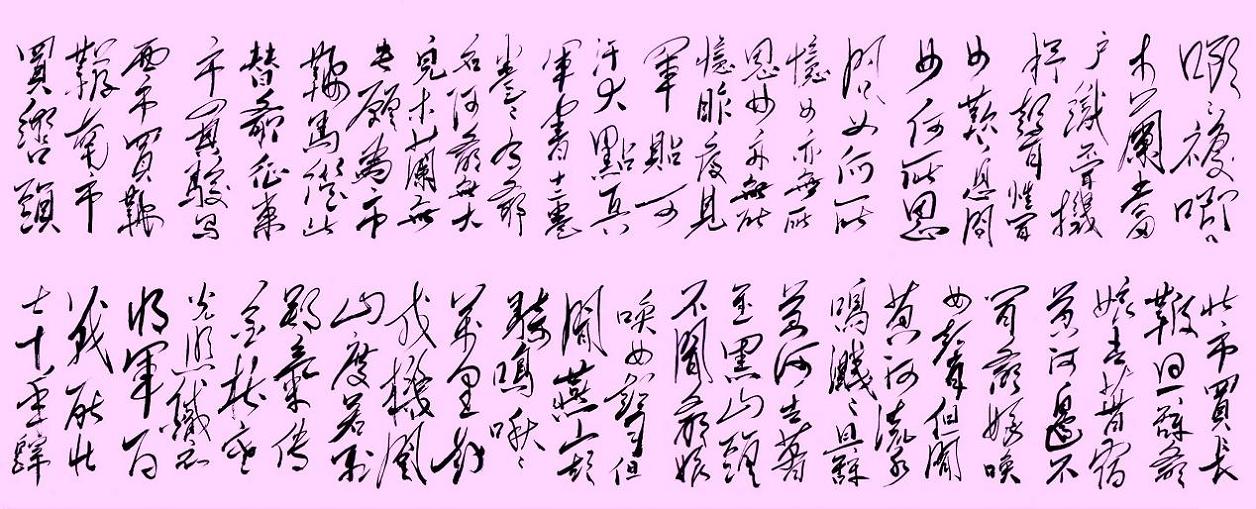 唧唧復唧唧
木蘭當
户織不聞機
杼聲惟聞
女歎息問
女何所思
問女何所
憶女亦無所
思女亦無所
憶昨夜見
軍帖可
汗大點兵
軍書十二卷
卷卷有爺
名阿爺無大
兒木蘭無
長願為市
鞍馬從此
替爺征東
市買駿馬
西市買鞍
韉南市
買轡頭
北市買長
鞭旦辭爺
孃去暮宿
黃河邊不
聞爺孃喚
女聲但聞
黃河流水
鳴濺濺旦辭
黃河去暮
至黑山頭
不聞爺孃
喚女聲但
聞燕山胡
騎鳴啾啾
萬里赴
戎機關
山度若飛
朔氣傳
金柝寒
光照鐵衣
將軍百
戰死壯
士十年歸